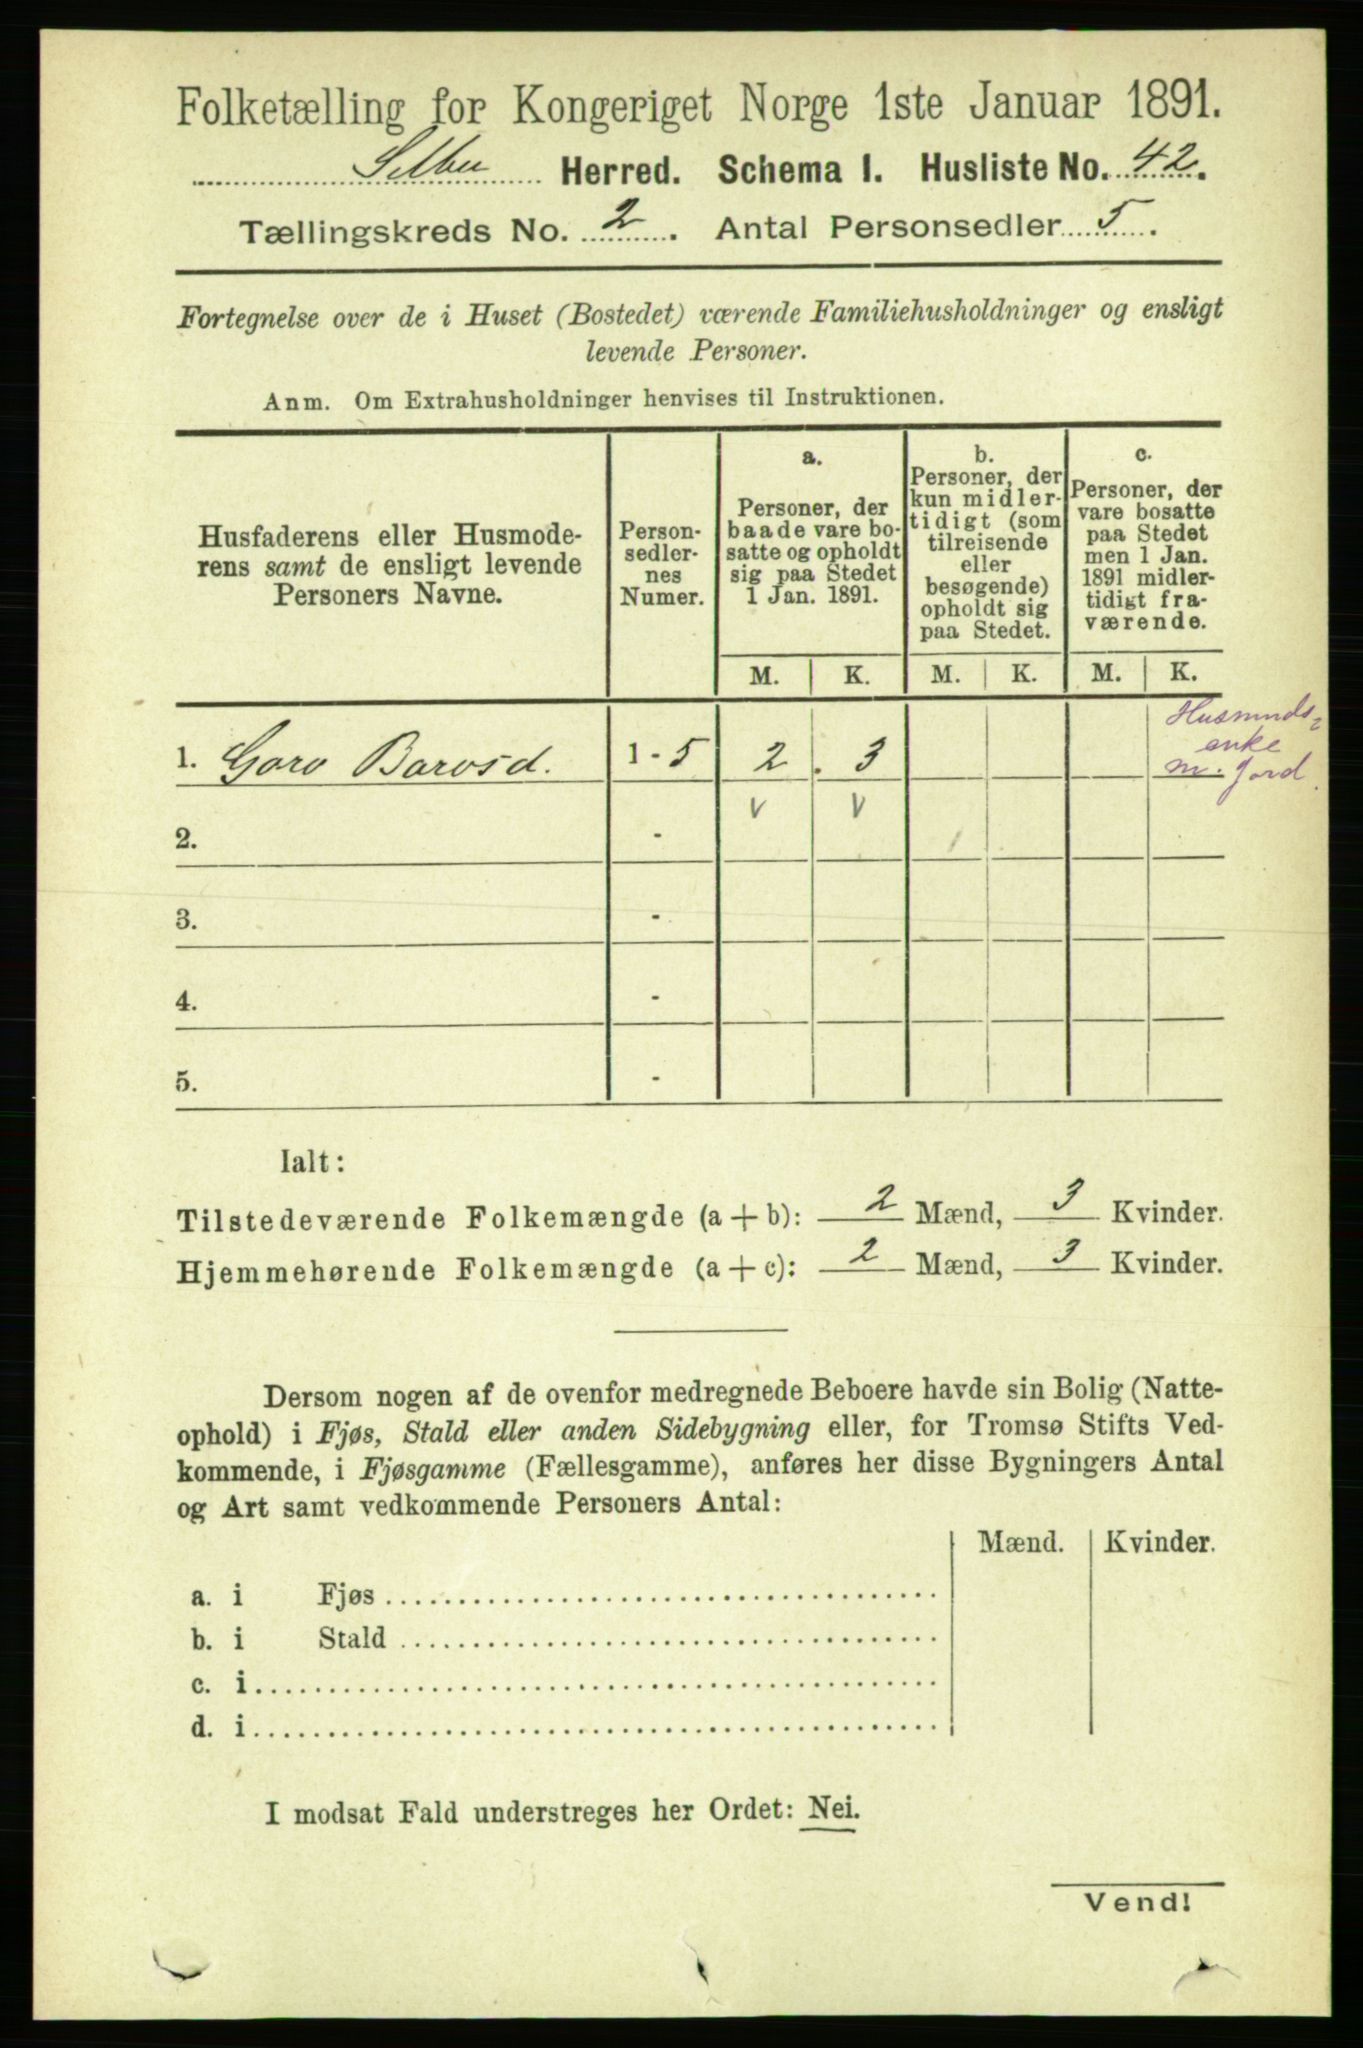 Folketælling for Kongeriget Norge 1ste Januar 1891.
Selbu Herred. Schema I. Husliste No. 42.
Tællingskreds No. 2. Antal Personsedler 5.
Fortegnelse over de i Huset (Bostedet) værende Familiehusholdninger og ensligt
levende Personer.
Anm. Om Extrahusholdninger henvises til Instruktionen.
Husfaderens eller Husmode-
rens samt de ensligt levende
Personers Navne.
Person-
sedler-
nes
Numer.
a.
Personer, der
baade vare bo-
satte og opholdt
sig paa Stedet
1 Jan. 1891.
b.
Personer, der
kun midler-
tidigt (som
tilreisende
eller
besøgende)
opholdt sig
paa Stedet.
c.
Personer, der
vare bosatte
paa Stedet
men 1 Jan.
1891 midler-
tidigt fra-
værende.
M. K. M. K. M. K.
1. Goro Barosd. 1 - 5 2 . 3
Husmnds=
enke
m. Jord.
v v
2. -
3. -
4. -
5. -
Ialt:
Tilstedeværende Folkemængde (a + b): 2 Mænd, 3 Kvinder.
Hjemmehørende Folkemængde (a + c): 2 Mænd, 3 Kvinder.
Dersom nogen af de ovenfor medregnede Beboere havde sin Bolig (Natte-
ophold) i Fjøs, Stald eller anden Sidebygning eller, for Tromsø Stifts Ved-
kommende, i Fjøsgamme (Fællesgamme), anføres her disse Bygningers Antal
og Art samt vedkommende Personers Antal:
Mænd. Kvinder.
a. i Fjøs
b. i Stald
c. i
d. i
I modsat Fald understreges her Ordet: Nei.
Vend!